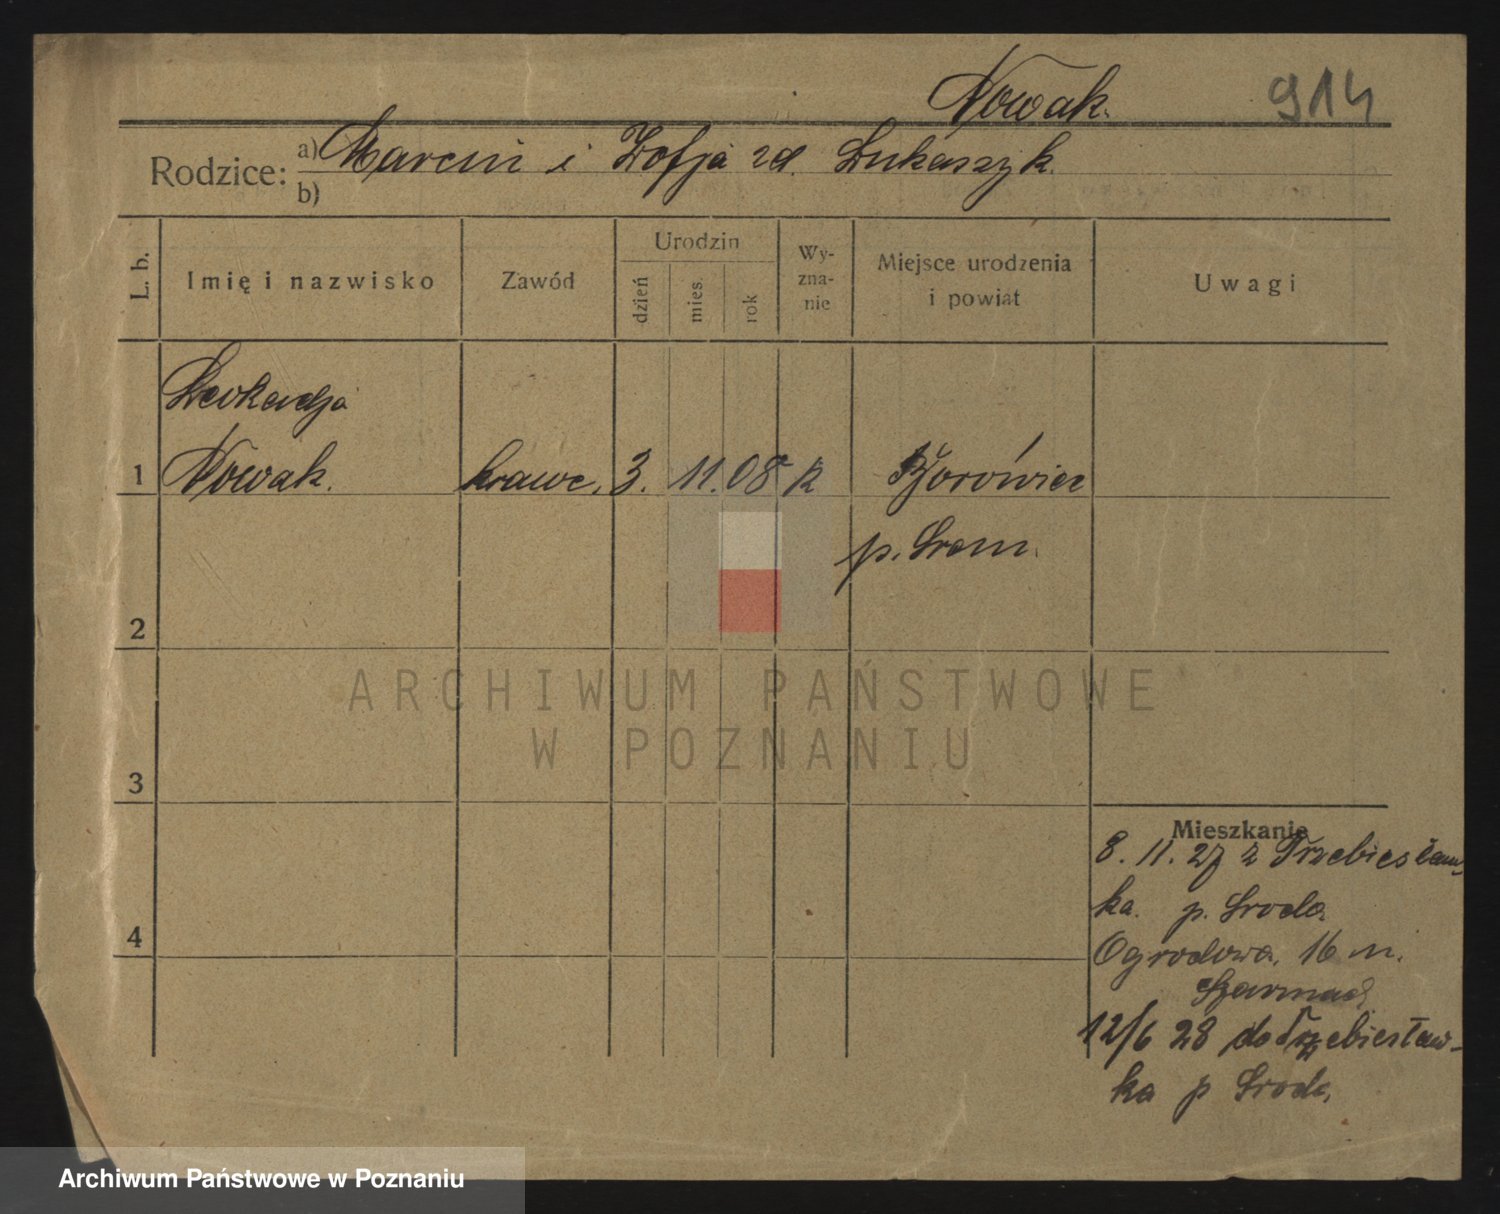 Nowak. 914
Rodzice: a) Marcin i Zofja zd. Łukaszyk.
b)
L. b. Imię i nazwisko Zawód Urodzin dzień mies. rok Wy-zna-nie Miejsce urodzenia i powiat Uwagi
Leokadja
1 Nowak. krawc. 3. 11. 08 k
p. Śrem.
2
ARCHIWUM PAŃSTWOWE
W POZNANIU
3
Mieszkanie
8. 11. 27 z Trzebiesław-
ka. p. Środa
4
Ogrodowa. 16 m.
12/6 28 do Trzebiesław-
ka p Środa,
Archiwum Państwowe w Poznaniu